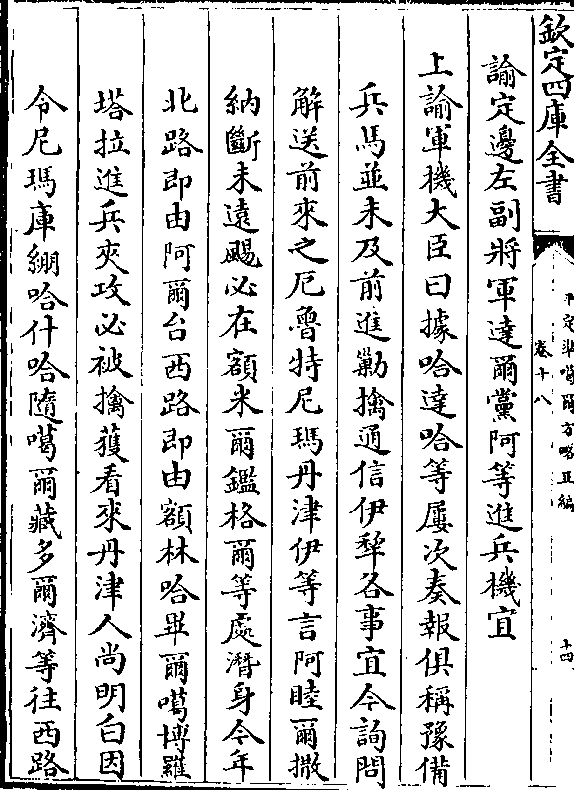 欽定四庫全書
平定準噶爾方略正編
卷十八
十四
諭定邊左副將軍達爾黨阿等進兵機宜
上諭軍機大臣曰據哈達哈等屢次奏報俱稱豫備
兵馬並未及前進勦擒通信伊犂各事宜今詢問
解送前來之厄魯特尼瑪丹津伊等言阿睦爾撒
納斷未遠颺必在額米爾鑑格爾等處潛身今年
北路即由阿爾台西路即由額林哈畢爾噶博羅
塔拉進兵夾攻必被擒獲看來丹津人尚明白因
令尼瑪庫綳哈什哈隨噶爾藏多爾濟等往西路